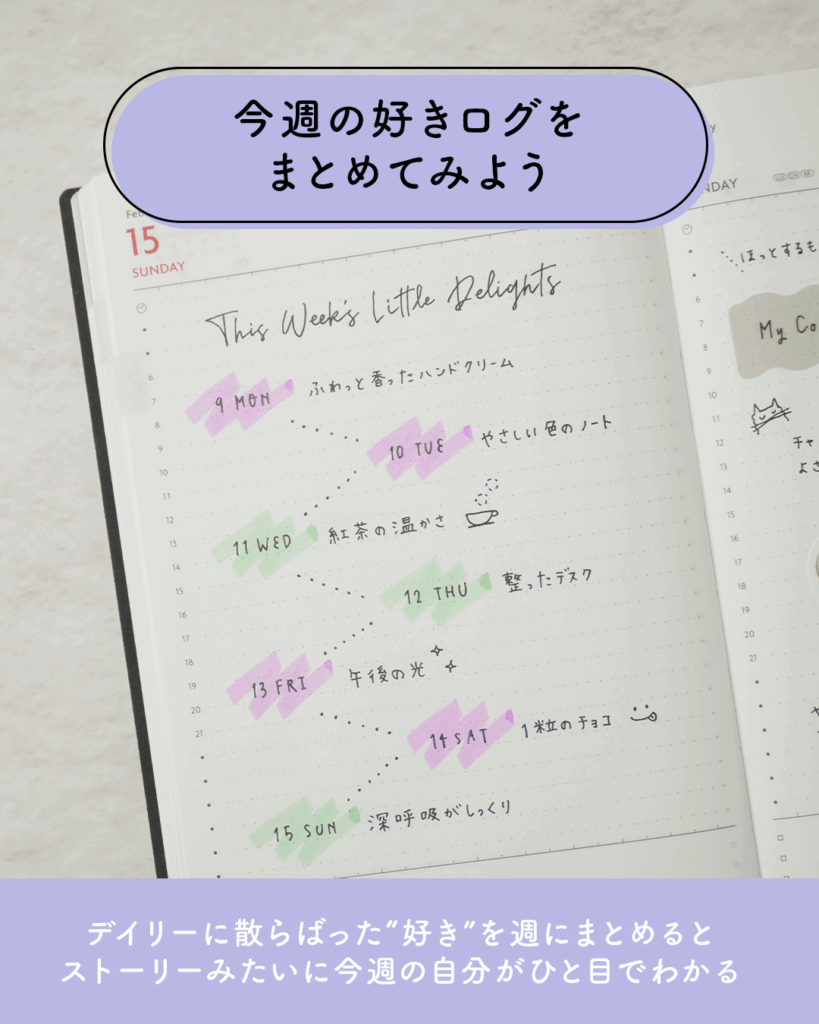 今週の好きログを
まとめてみよう
15
SUNDAY
This Week's Little Delights
9 MON ふわっと香ったハンドクリーム
10 TUE やさしい色のノート
11 WED 紅茶の温かさ
12 THU 整ったデスク
13 FRI 午後の光
14 SAT 1粒のチョコ
15 SUN 深呼吸がしっくり
6
7
8
9
10
11
12
13
14
15
16
17
18
19
20
21
ほっとするも
My Co
チャ
よさ
6
7
8
9
10
11
12
13
14
15
16
17
18
19
20
21
デイリーに散らばった“好き”を週にまとめると
ストーリーみたいに今週の自分がひと目でわかる